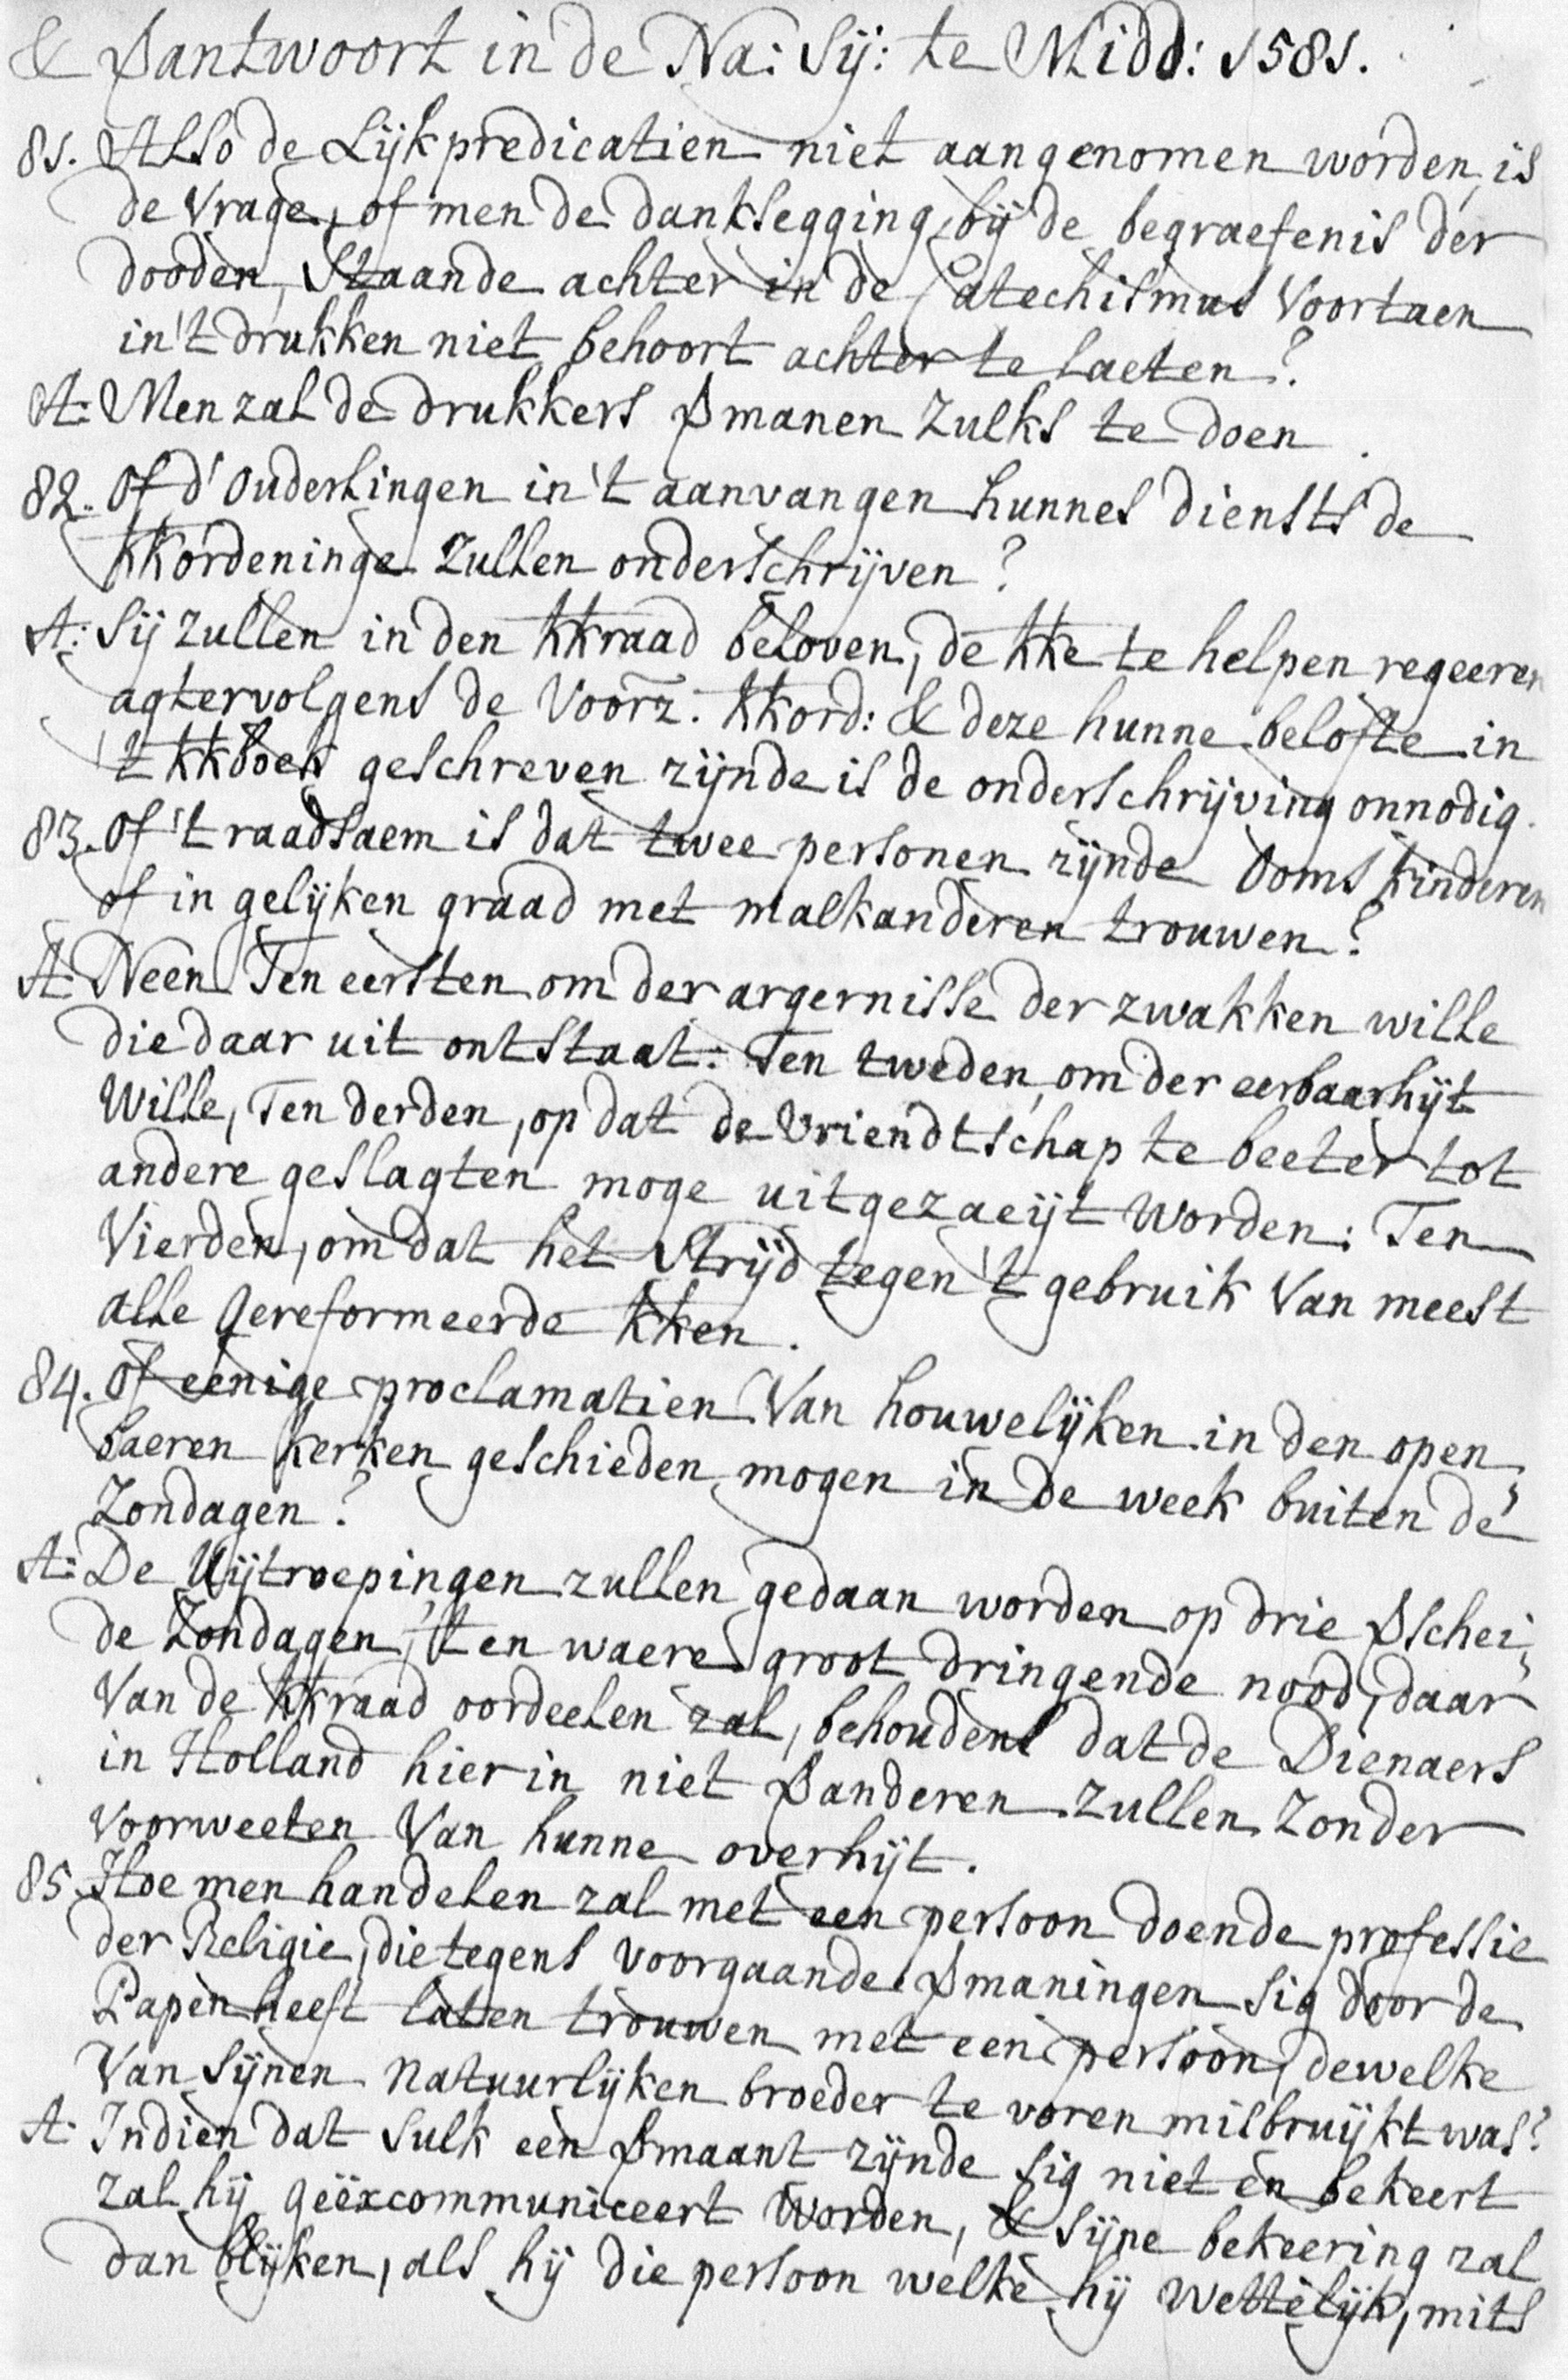 & Vantwoort in de Na: Sij: te Midd: 1581.
81. Also de Lijkpredicatien niet aangenomen worden, is
de Vrage, of men de danksegging bij de begraefenis der
dooden, Staande achter in de Catechismus Voortaen
in't drukken niet behoort achter te laeten?
A: Men zal de drukkers Vmanen Zulks te doen.
82. Of d'Ouderlingen in't aanvangen hunnes diensts de
KKordeninge Zullen onderschrijven?
A: Sij zullen in den KKraad beloven, de KKe te helpen regeeren
agtervolgens de Voorz. KKord: & deze hunne belofte in
't KKboek geschreven zijnde is de onderschrijving onnodig.
83. Of 't raadsaem is dat twee personen zijnde Ooms kinderen
of in gelijken graad met malkanderen trouwen?
A: Neen. Ten eersten om der argernisse der zwakken wille
die daar uit ontstaat: Ten tweden, om der eerbaarhijt
Wille, Ten derden, op dat de Vriendtschap te beeter tot
andere geslagten moge uitgezaeijt Worden: Ten
Vierden, om dat het Strijd tegen 't gebruik Van meest
alle Gereformeerde KKen.
84. Of eenige proclamatien Van houwelijken in den open„
baeren kerken geschieden mogen in de week buiten de
Zondagen?
A: De Uijtroepingen zullen gedaan worden op drie Vschei„
de Zondagen, 't en waere groot dringende nood, daar
Van de KKraad oordeelen zal, behoudens dat de Dienaers
in Holland hier in niet Vanderen zullen Zonder
Voorweeten Van hunne overhijt.
85. Hoe men handelen zal met een persoon doende professie
der Religie, die tegens Voorgaande Vmaningen sig door de
Papen heeft laten trouwen met een persoon, dewelke
Van Sijnen Natuurlijken broeder te voren misbruijkt was?
A: Indien dat Sulk een Vmaant zijnde sig niet en bekeert
zal hij geëxcommuniceert Worden, & Sijne bekeering zal
dan blijken, als hij die persoon welke hij Wettelijk, mits